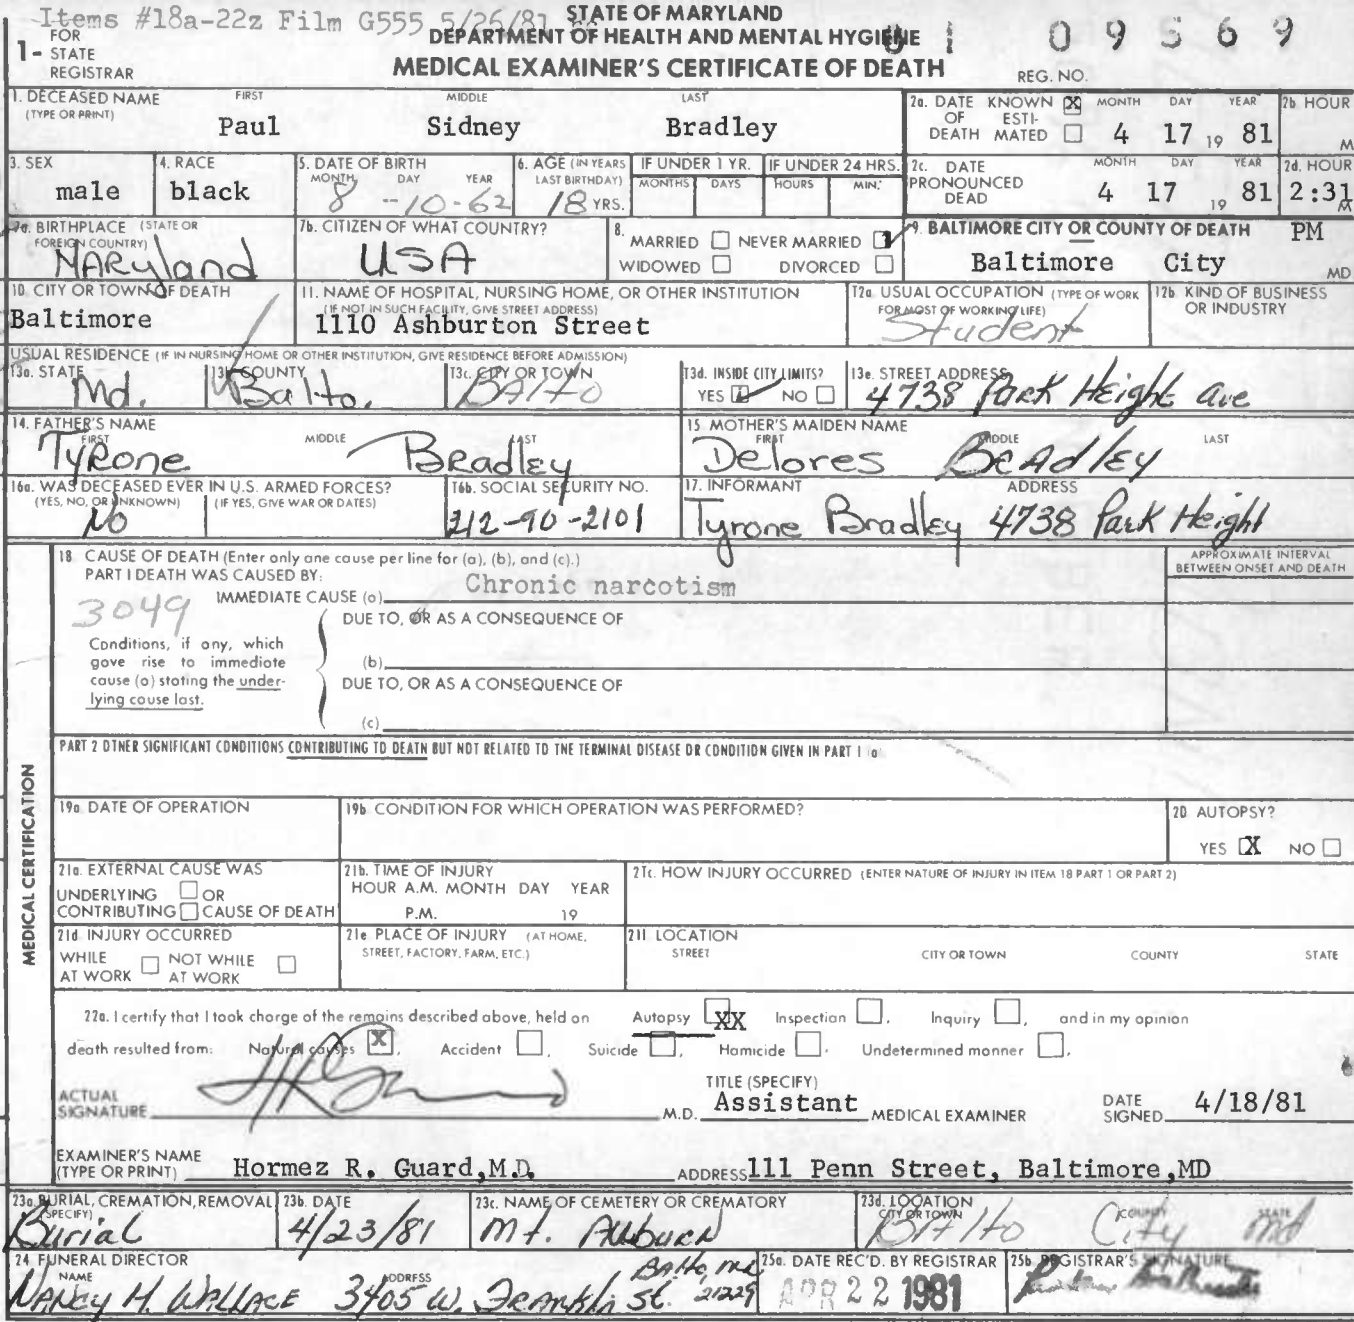 Items #18a-22z Film G555 5/26/81
STATE OF MARYLAND
DEPARTMENT OF HEALTH AND MENTAL HYGIENE
MEDICAL EXAMINER'S CERTIFICATE OF DEATH
1- FOR STATE REGISTRAR
REG. NO. 81 09569
1. DECEASED NAME (TYPE OR PRINT) FIRST MIDDLE LAST
Paul Sidney Bradley
2a. DATE OF DEATH KNOWN X ESTIMATED MONTH DAY YEAR
4 17 19 81
2b. HOUR M
3. SEX
male
4. RACE
black
5. DATE OF BIRTH MONTH DAY YEAR
8-10-62
6. AGE (IN YEARS LAST BIRTHDAY)
18 YRS.
IF UNDER 1 YR. MONTHS DAYS
IF UNDER 24 HRS. HOURS MIN.
2c. DATE PRONOUNCED DEAD MONTH DAY YEAR
4 17 19 81
2d. HOUR
2:31 M
PM
7a. BIRTHPLACE (STATE OR FOREIGN COUNTRY)
Maryland
7b. CITIZEN OF WHAT COUNTRY?
USA
8. MARRIED NEVER MARRIED
WIDOWED DIVORCED
9. BALTIMORE CITY OR COUNTY OF DEATH
Baltimore City MD
10. CITY OR TOWN OF DEATH
Baltimore
11. NAME OF HOSPITAL, NURSING HOME, OR OTHER INSTITUTION
(IF NOT IN SUCH FACILITY, GIVE STREET ADDRESS)
1110 Ashburton Street
12a. USUAL OCCUPATION (TYPE OF WORK FOR MOST OF WORKING LIFE)
Student
12b. KIND OF BUSINESS OR INDUSTRY
USUAL RESIDENCE (IF IN NURSING HOME OR OTHER INSTITUTION, GIVE RESIDENCE BEFORE ADMISSION)
13a. STATE
Md.
13b. COUNTY
Balto.
13c. CITY OR TOWN
Balto
13d. INSIDE CITY LIMITS?
YES NO
13e. STREET ADDRESS
4738 Park Height ave
14. FATHER'S NAME FIRST MIDDLE LAST
Tyrone Bradley
15. MOTHER'S MAIDEN NAME FIRST MIDDLE LAST
Delores Bradley
16a. WAS DECEASED EVER IN U.S. ARMED FORCES?
(YES, NO, OR UNKNOWN) (IF YES, GIVE WAR OR DATES)
No
16b. SOCIAL SECURITY NO.
212-90-2101
17. INFORMANT ADDRESS
Tyrone Bradley 4738 Park Height
MEDICAL CERTIFICATION
18 CAUSE OF DEATH (Enter only one cause per line for (a), (b), and (c).)
APPROXIMATE INTERVAL BETWEEN ONSET AND DEATH
PART I DEATH WAS CAUSED BY:
IMMEDIATE CAUSE (a) Chronic narcotism
3049
DUE TO, OR AS A CONSEQUENCE OF
Conditions, if any, which gave rise to immediate cause (a) stating the underlying cause last.
(b)
DUE TO, OR AS A CONSEQUENCE OF
(c)
PART 2 OTHER SIGNIFICANT CONDITIONS CONTRIBUTING TO DEATH BUT NOT RELATED TO THE TERMINAL DISEASE OR CONDITION GIVEN IN PART 1 a
19a. DATE OF OPERATION
19b. CONDITION FOR WHICH OPERATION WAS PERFORMED?
20 AUTOPSY?
YES X NO
21a. EXTERNAL CAUSE WAS
UNDERLYING OR
CONTRIBUTING CAUSE OF DEATH
21b. TIME OF INJURY
HOUR A.M. MONTH DAY YEAR
P.M. 19
21c. HOW INJURY OCCURRED (ENTER NATURE OF INJURY IN ITEM 18 PART 1 OR PART 2)
21d INJURY OCCURRED
WHILE AT WORK NOT WHILE AT WORK
21e PLACE OF INJURY (AT HOME, STREET, FACTORY, FARM, ETC.)
21f LOCATION
STREET CITY OR TOWN COUNTY STATE
22a. I certify that I took charge of the remains described above, held on Autopsy XX Inspection , Inquiry , and in my opinion
death resulted from: Natural causes X , Accident , Suicide , Homicide , Undetermined manner .
ACTUAL SIGNATURE M.D.
TITLE (SPECIFY)
Assistant MEDICAL EXAMINER
DATE SIGNED 4/18/81
EXAMINER'S NAME (TYPE OR PRINT) Hormez R. Guard,M.D.
ADDRESS 111 Penn Street, Baltimore,MD
23a. BURIAL, CREMATION, REMOVAL (SPECIFY)
Burial
23b. DATE
4/23/81
23c. NAME OF CEMETERY OR CREMATORY
Mt. Auburn
23d. LOCATION CITY OR TOWN COUNTY STATE
Balto City Md
24 FUNERAL DIRECTOR
NAME ADDRESS
Nancy H. Wallace 3405 W. Franklin St. Balto, Md. 21229
25a. DATE REC'D. BY REGISTRAR
APR 22 1981
25b. REGISTRAR'S SIGNATURE